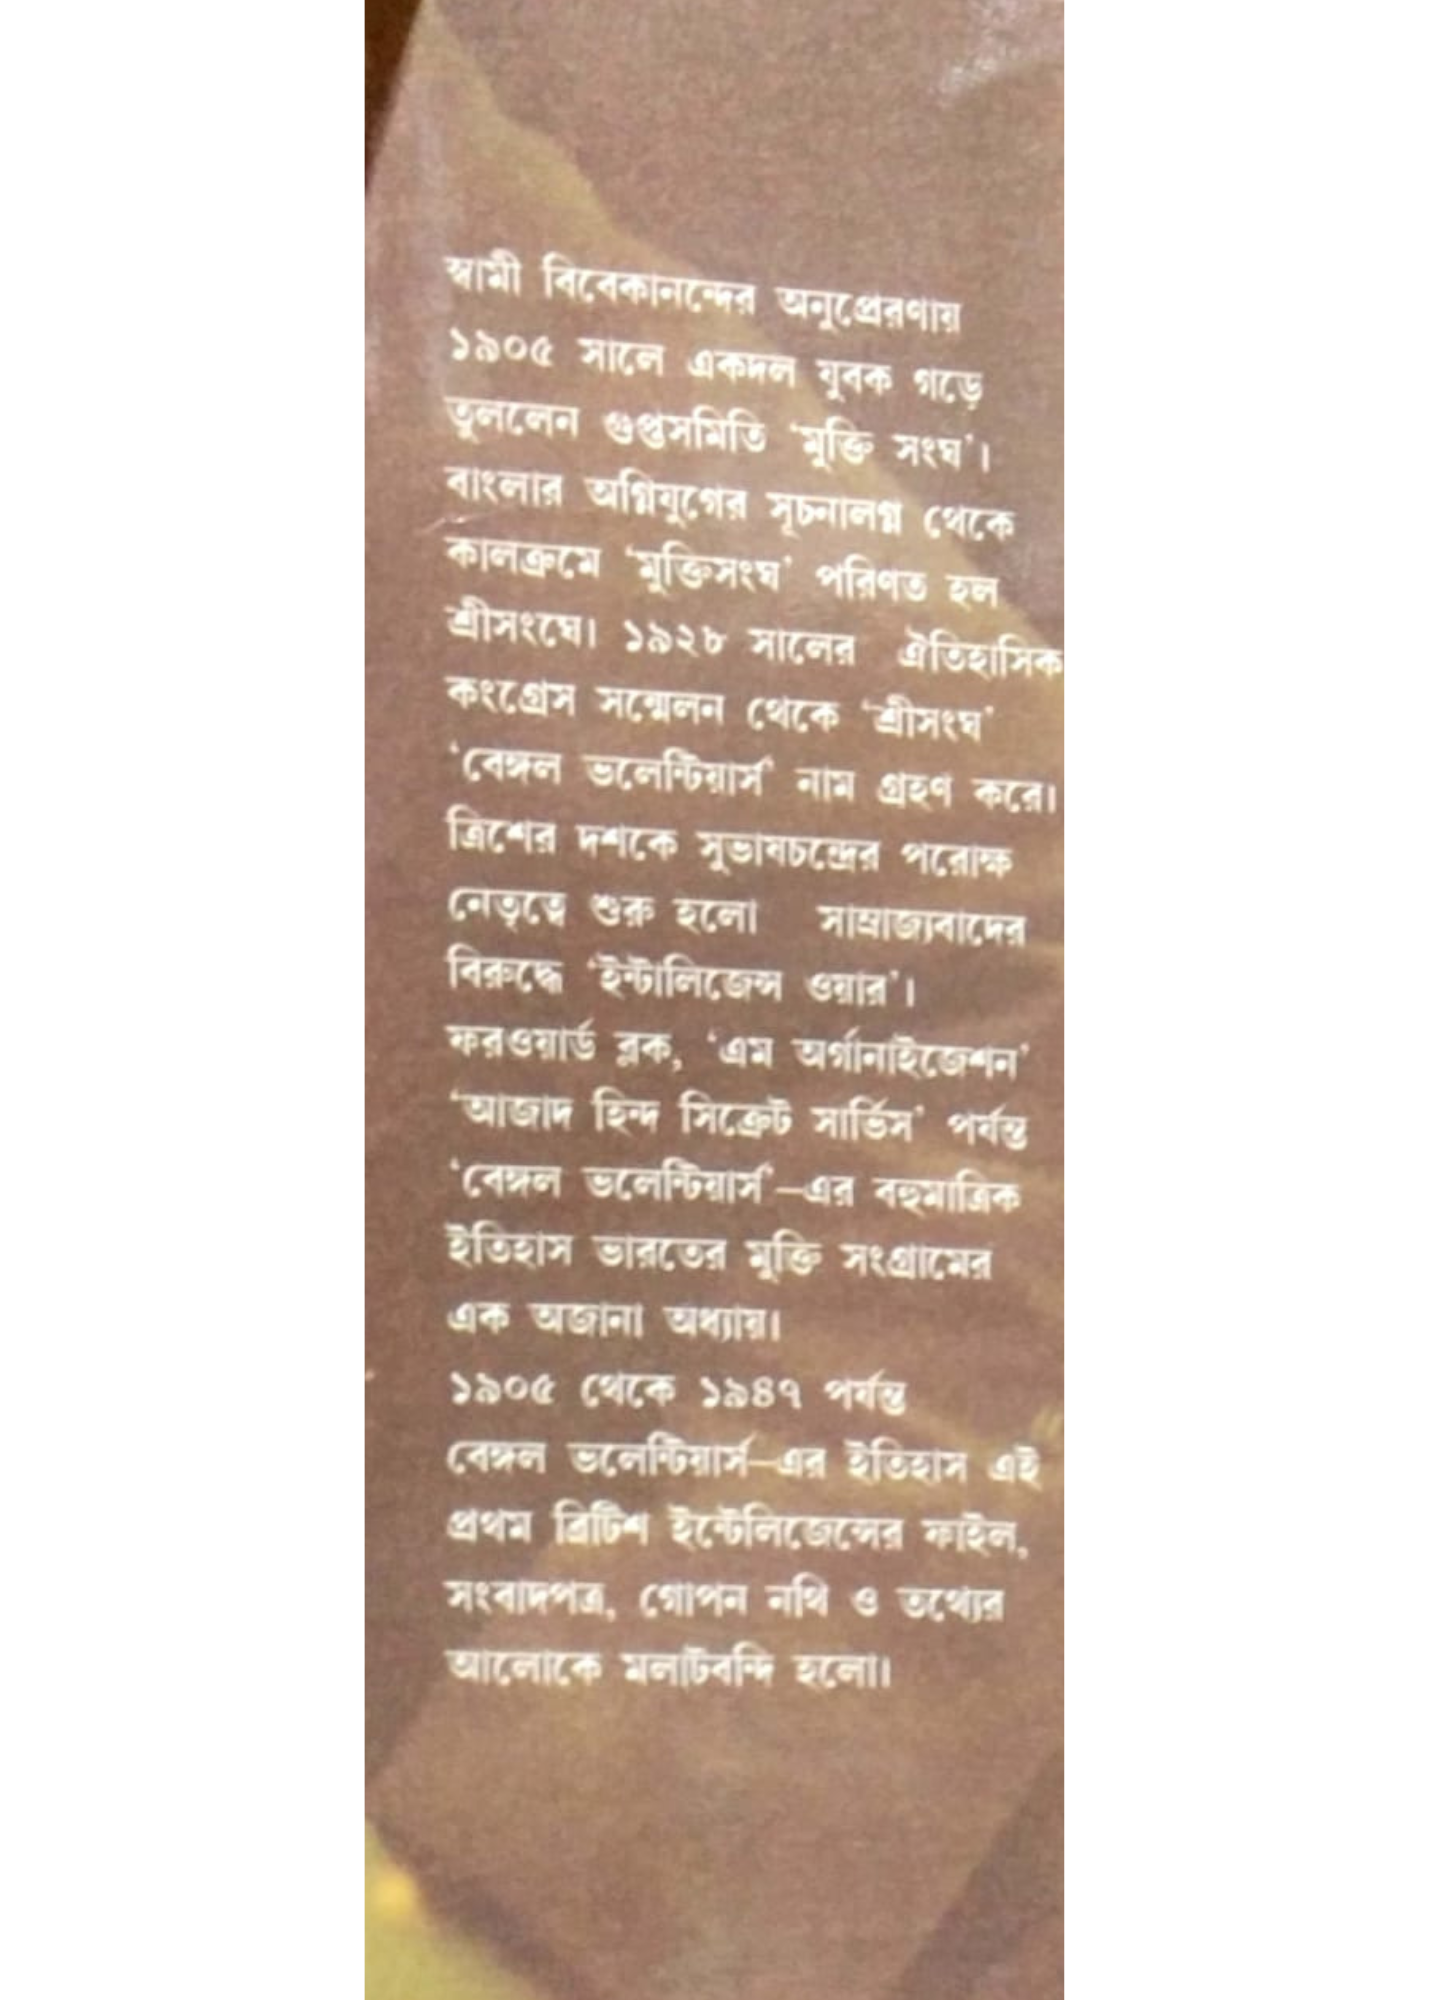 স্বামী বিবেকানন্দের অনুপ্রেরণায়
১৯০৫ সালে একদল যুবক গড়ে
তুললেন গুপ্তসমিতি ‘মুক্তি সংঘ’।
বাংলার অগ্নিযুগের সূচনালগ্ন থেকে
কালক্রমে ‘মুক্তিসংঘ’ পরিণত হল
শ্রীসংঘে। ১৯২৮ সালের ঐতিহাসিক
কংগ্রেস সম্মেলন থেকে ‘শ্রীসংঘ’
‘বেঙ্গল ভলেন্টিয়ার্স’ নাম গ্রহণ করে।
ত্রিশের দশকে সুভাষচন্দ্রের পরোক্ষ
নেতৃত্বে শুরু হলো সাম্রাজ্যবাদের
বিরুদ্ধে ‘ইন্টালিজেন্স ওয়ার’।
ফরওয়ার্ড ব্লক, ‘এম অর্গানাইজেশন’
‘আজাদ হিন্দ সিক্রেট সার্ভিস’ পর্যন্ত
‘বেঙ্গল ভলেন্টিয়ার্স’–এর বহুমাত্রিক
ইতিহাস ভারতের মুক্তি সংগ্রামের
এক অজানা অধ্যায়।
১৯০৫ থেকে ১৯৪৭ পর্যন্ত
বেঙ্গল ভলেন্টিয়ার্স–এর ইতিহাস এই
প্রথম ব্রিটিশ ইন্টেলিজেন্সের ফাইল,
সংবাদপত্র, গোপন নথি ও তথ্যের
আলোকে মলাটবন্দি হলো।